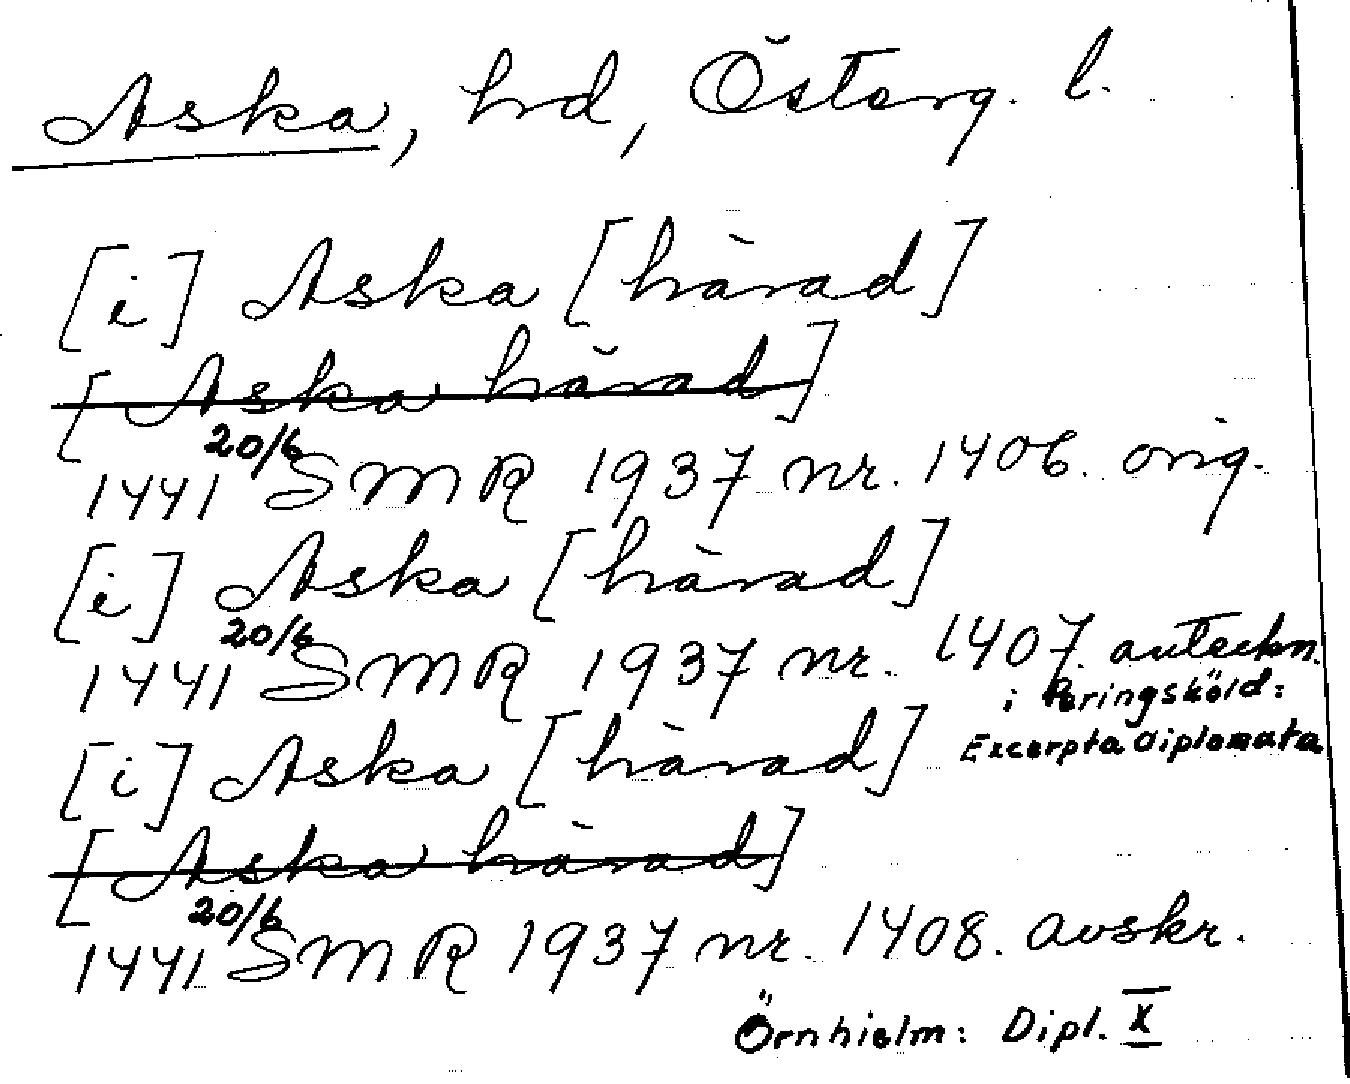 Aska, hd, Österg. l.
[i] Aska [härad]
[Aska härad]
1441 20/6 SMR 1937 nr. 1406. orig.
[i] Aska [härad]
1441 20/6 SMR 1937 nr. 1407. anteckn.
i Peringsköld:
Excerpta Diplomata
[i] Aska [härad]
[Aska härad]
1441 20/6 SMR 1937 nr. 1408. avskr.
Örnhielm: Dipl. X